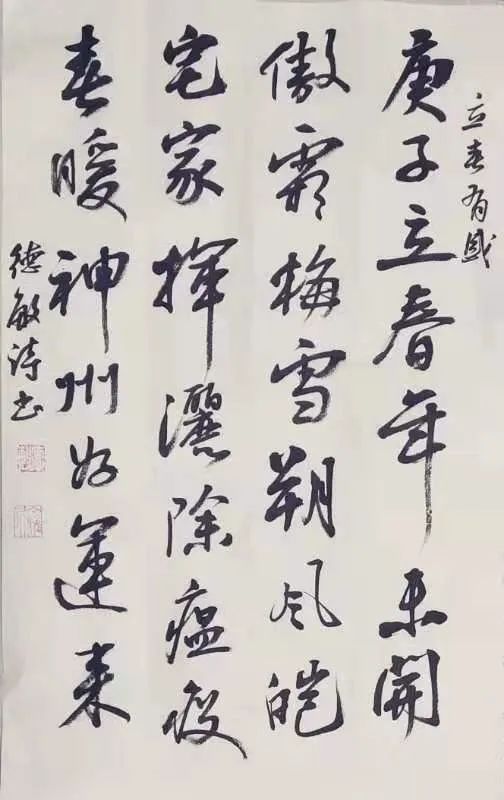 立春有感
庚子立春年未開
傲霜梅雪朔风皑
宅家揮灑除瘟疫
春暖神州好運来
德敏诗书